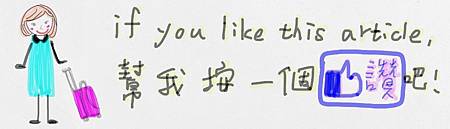 if you like this article,
幫我按一個讚吧!